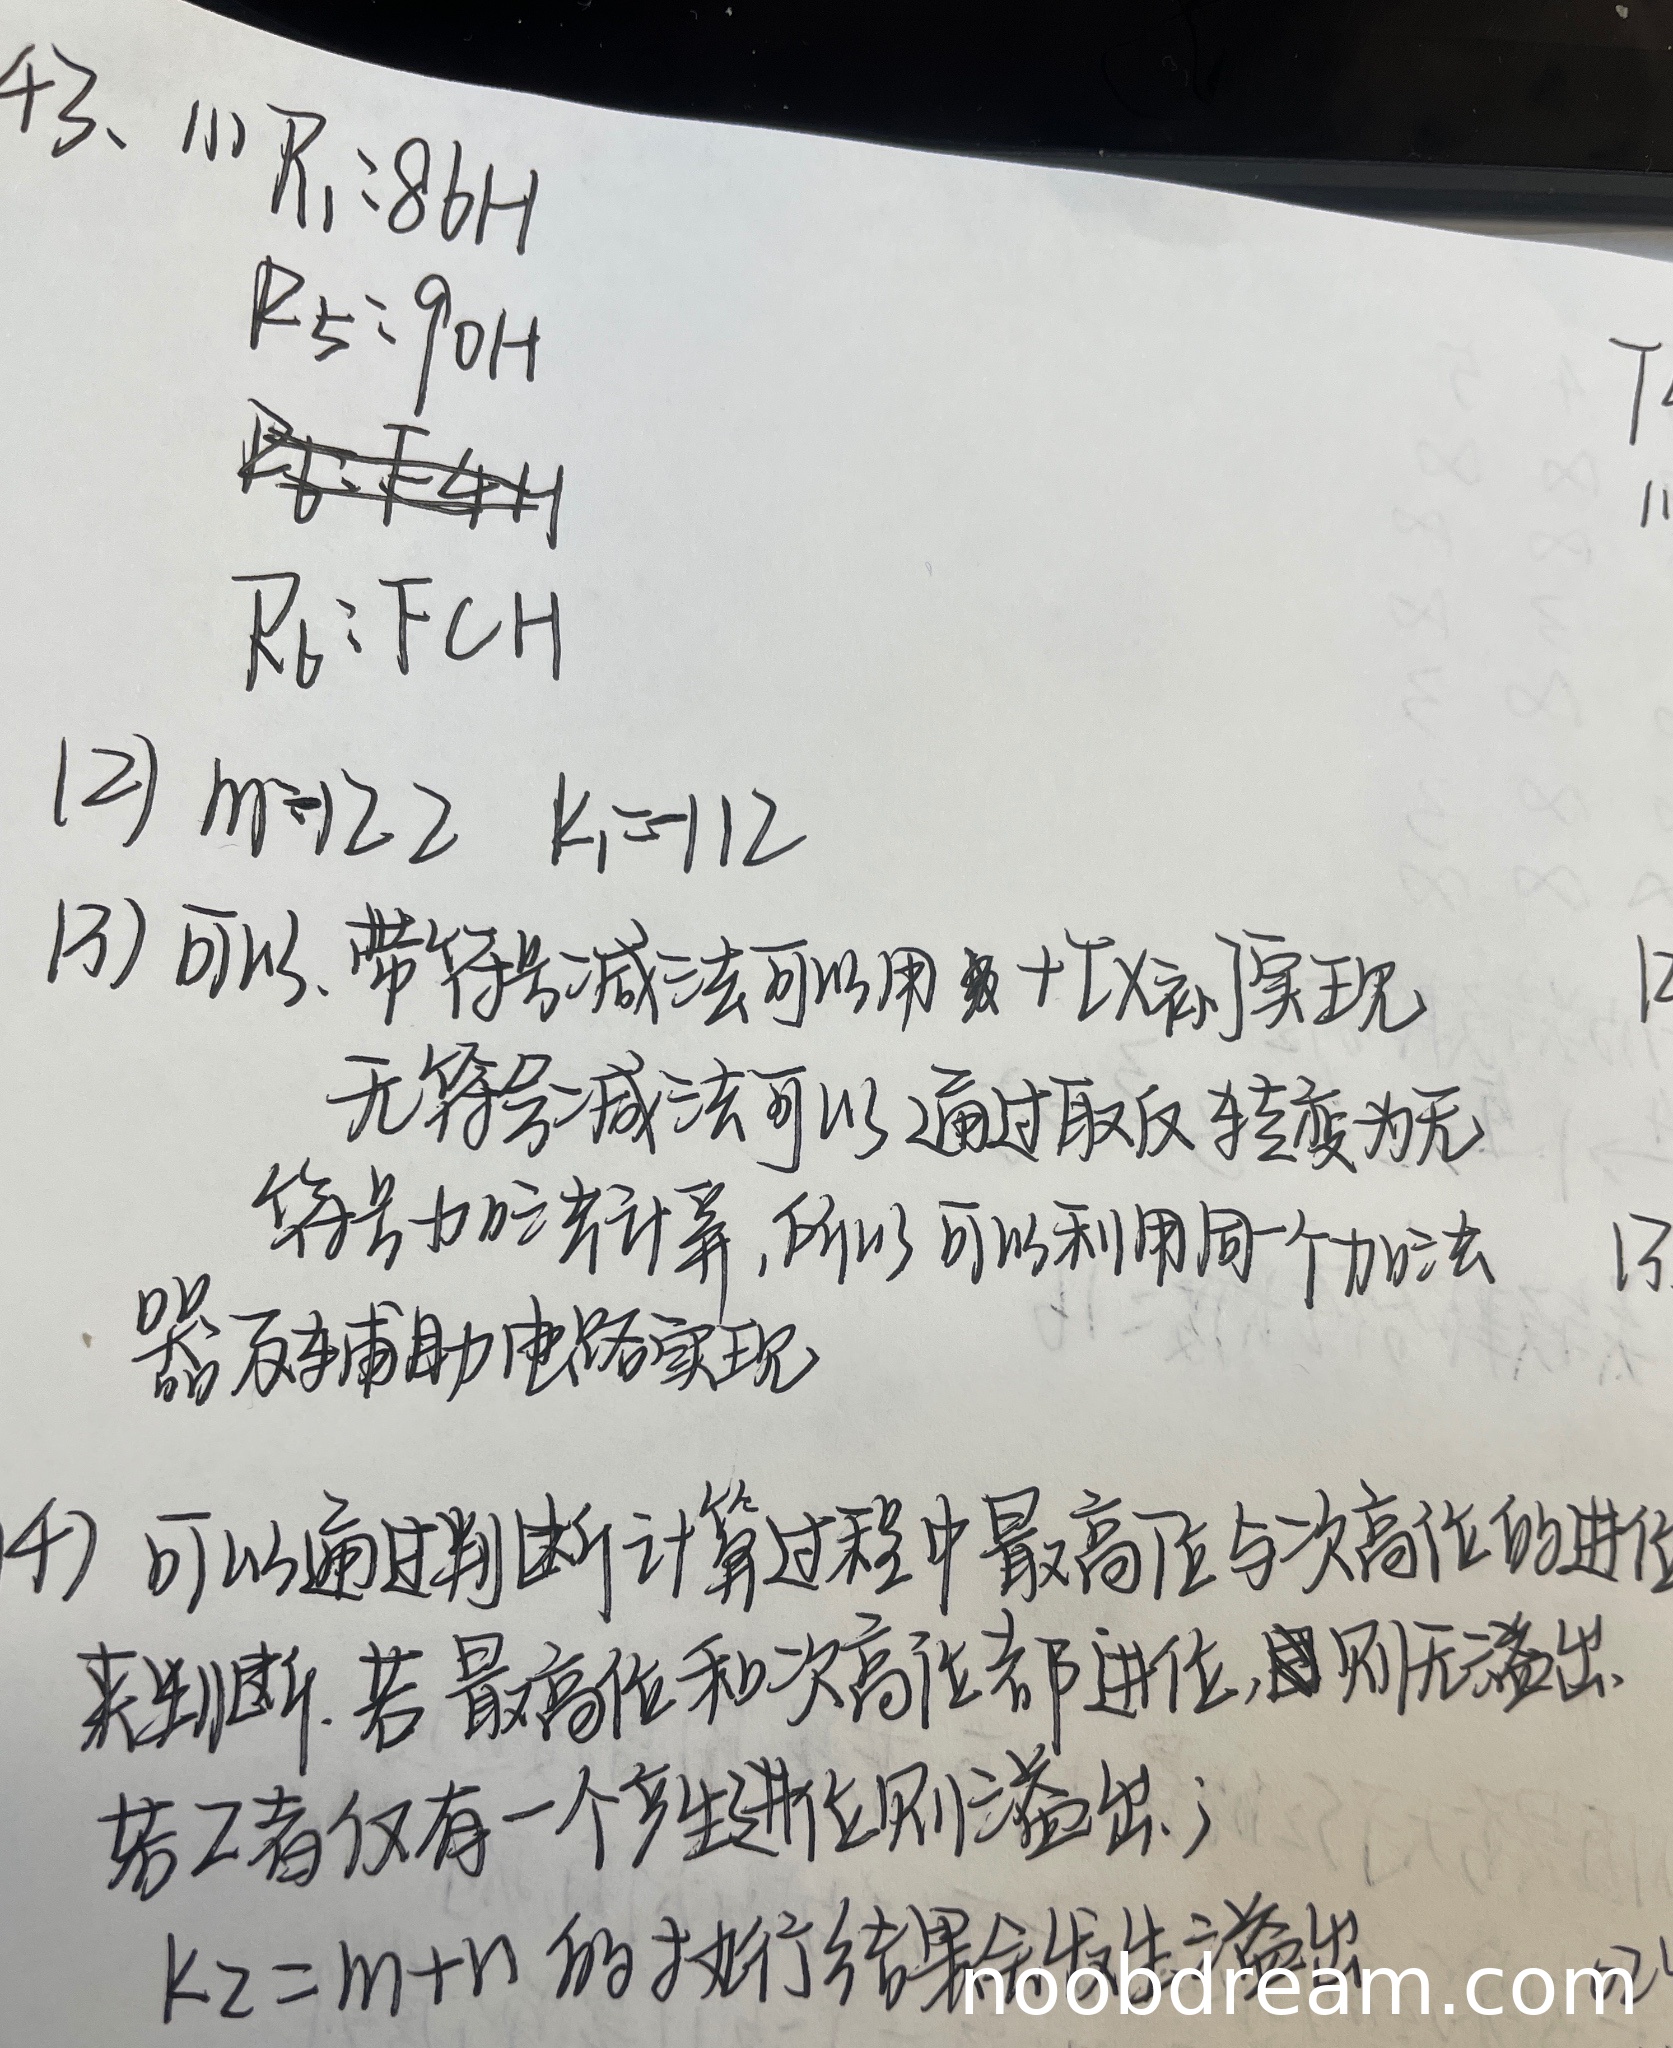 43、(1) R1:86H
R5:90H
R6:F4H
R6:FCH
(2) m=-122 k1=-112
(3) 可以、带符号减法可以用 +[X补]实现
无符号减法可以通过取反转变为无
符号加法计算,所以可以利用同一个加法
器及辅助电路实现
(4) 可以通过判断计算过程中最高位与次高位的进位
来判断.若最高位和次高位都进位,则无溢出、
若2者仅有一个产生进位则溢出;
k2=m+n 的执行结果会发生溢出
noobdream.com
T
(1
12
13